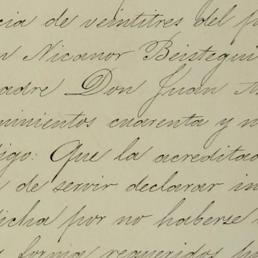 cia de veintitres del p
n Nicanor Beistegui
adre Don Juan A
uinientos cuarenta y n
digo: Que la acreditad
a de servir declarar in
dicha por no haberse
forma requeridos